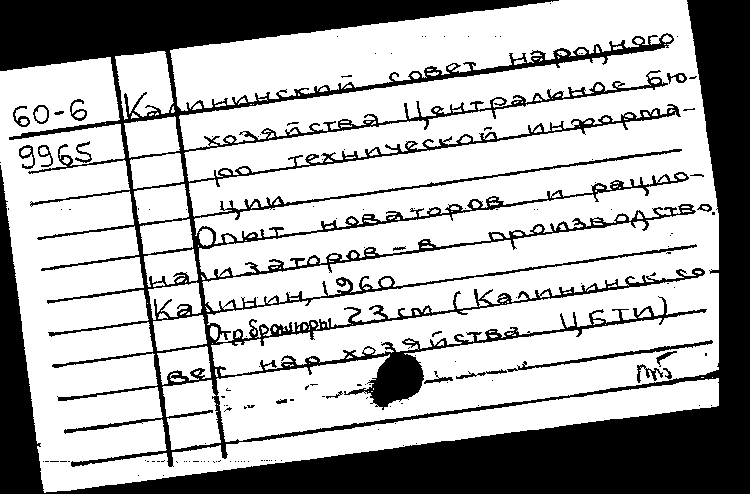 60-6 Калининский совет народного
9965 хозяйства Центральное бю-
ро технической информа-
ции
Опыт новаторов и рацио-
нализаторов - в производство.
Калинин, 1960
Отд. брошюры 23 см (Калининск. со-
вет нар хозяйства. ЦБТИ)